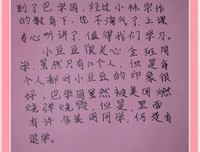 到了巴学园，经过小林宗作
的教育下，也不淘气了，上课
专心听讲了，值得我们学习。
小豆豆很关心全班同
学，虽然只有10个人，但是每
个人都对小豆豆的印象很
好，巴学园虽然被美国燃
烧弹烧毁，但是，里面
有许多美同同学，仍没有
退学。